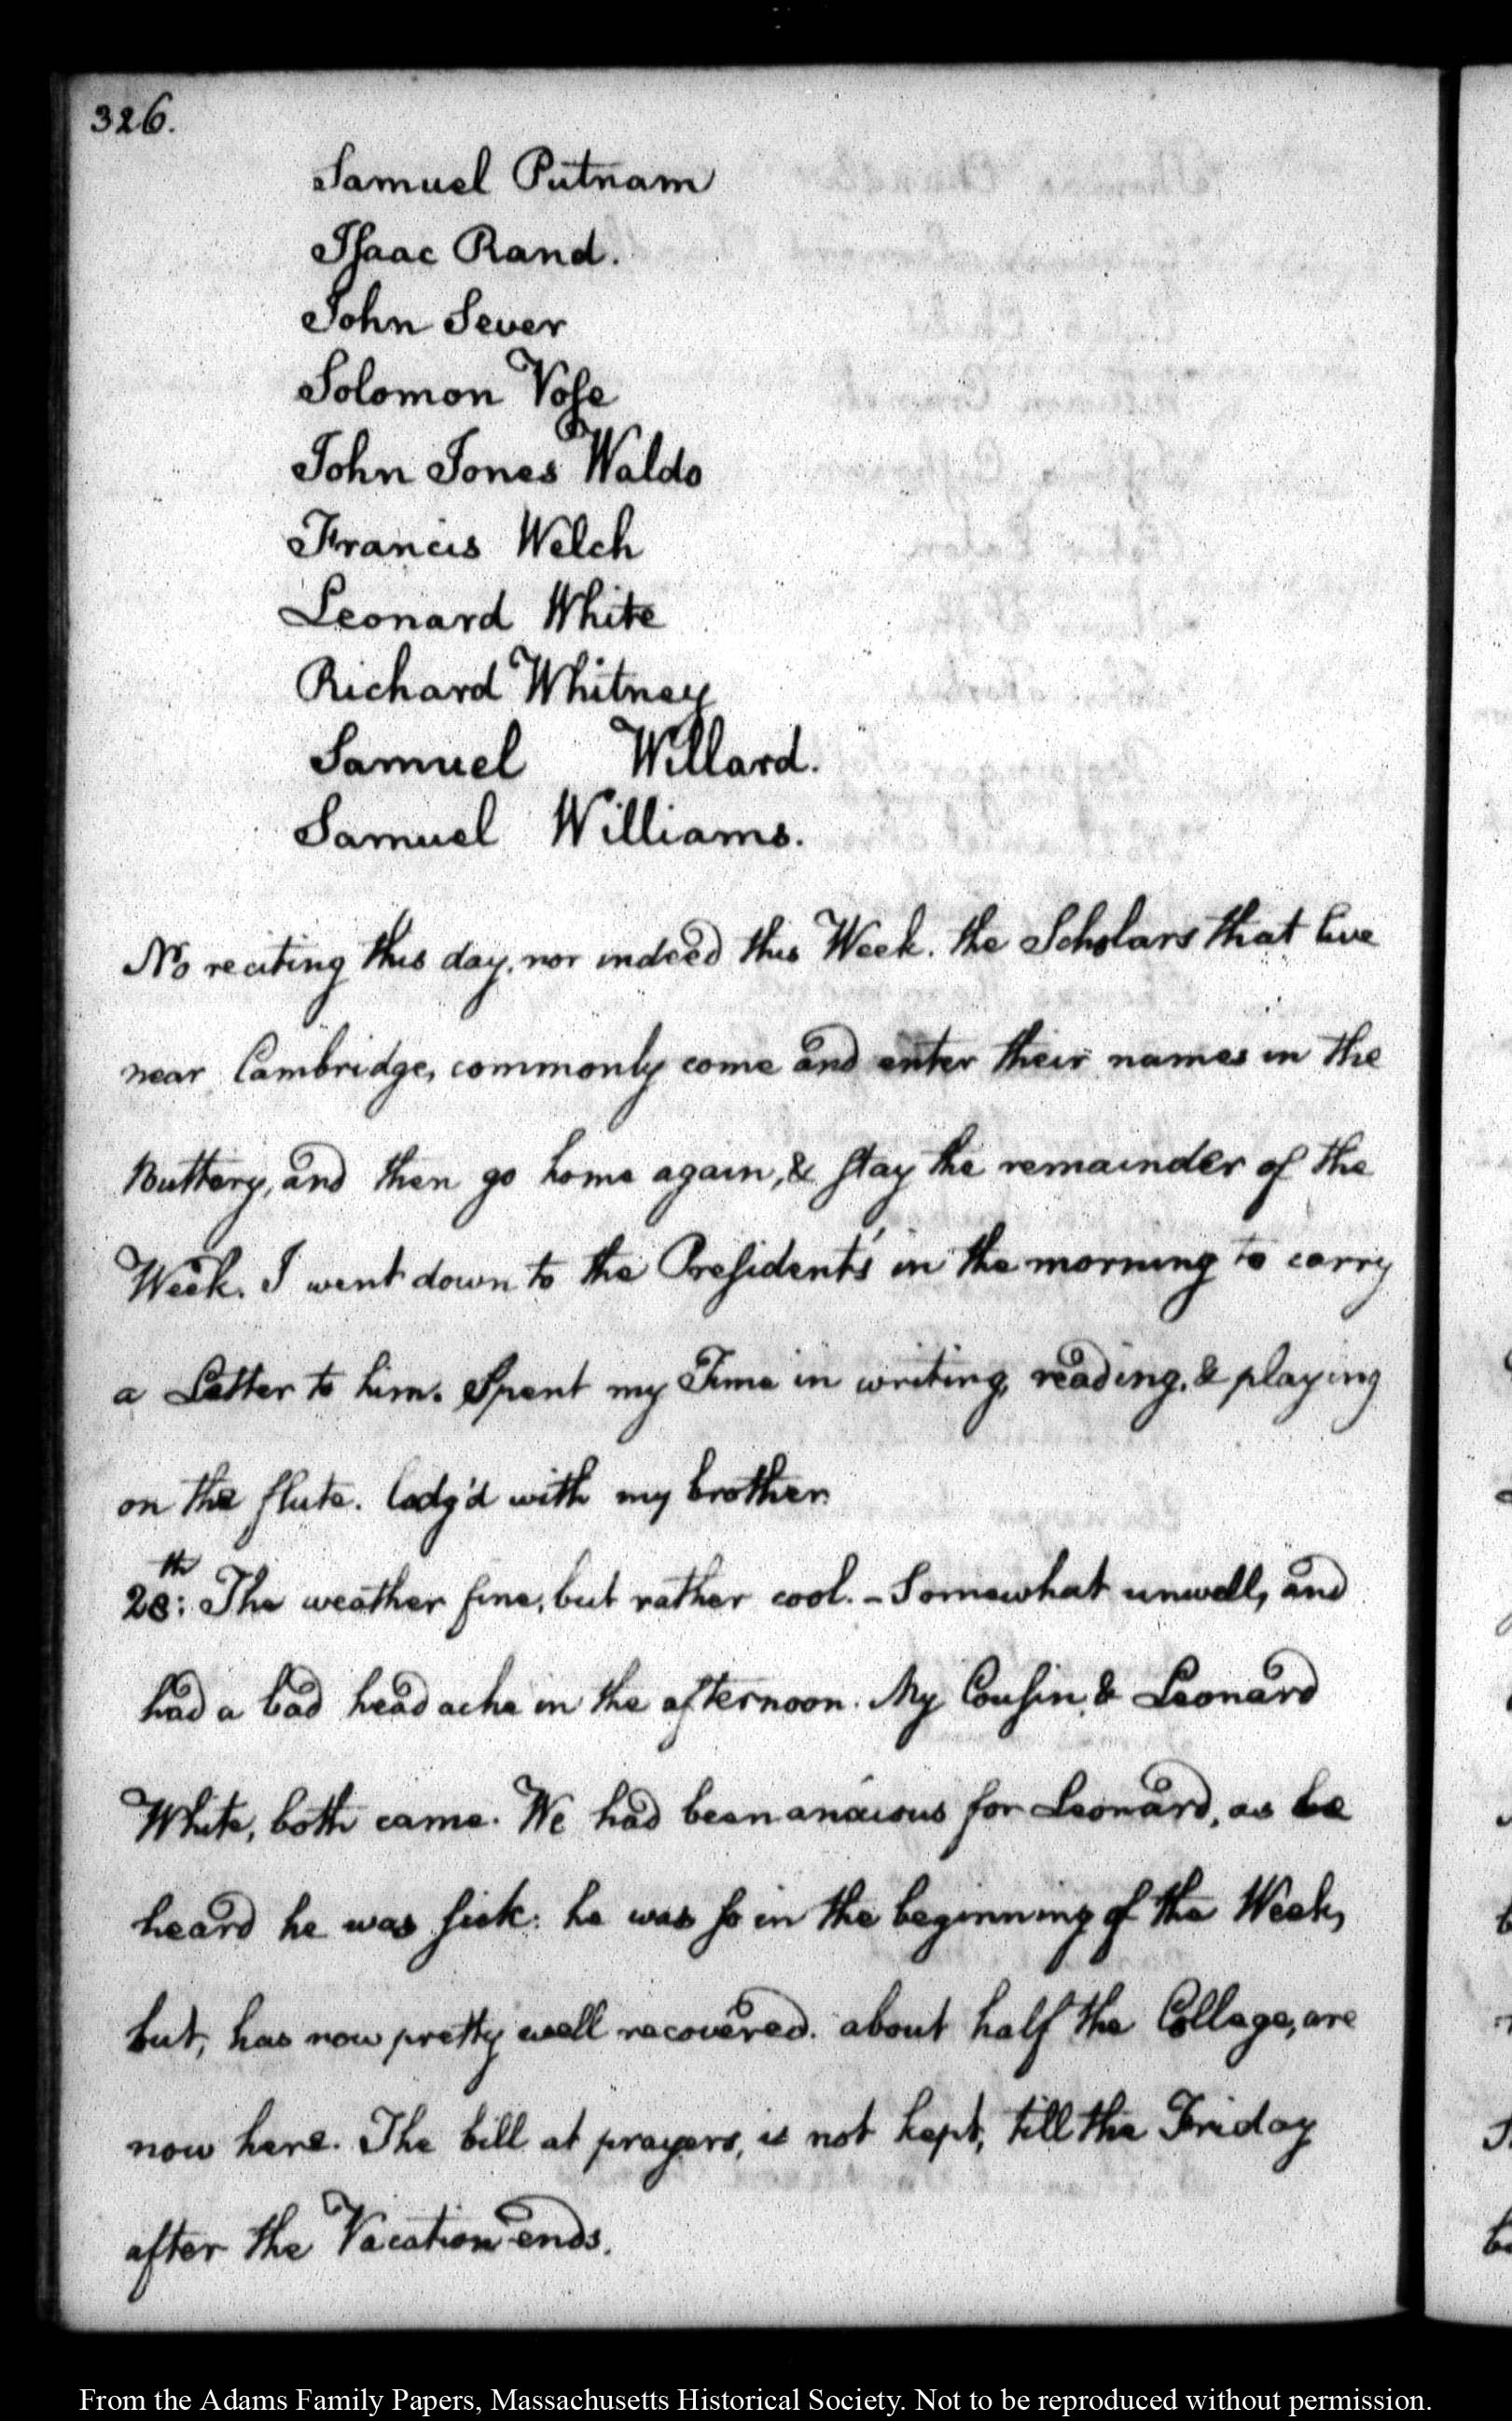 326.
Samuel Putnam
Isaac Rand.
John Sever
Solomon Vose
John Jones Waldo
Francis Welch
Leonard White
Richard Whitney
Samuel Willard.
Samuel Williams.
No reciting this day, nor indeed this Week. the Scholars that live
near Cambridge, commonly come and enter their names in the
Buttery, and then go home again, & stay the remainder of the
Week. I went down to the President's in the morning to carry
a Letter to him. Spent my Time in writing, reading, & playing
on the flute. lodg'd with my brother.
28th: The weather fine, but rather cool. - Somewhat unwell, and
had a bad head ache in the afternoon. My Cousin, & Leonard
White, both came. We had been anxious for Leonard, as we
heard he was sick: he was so in the beginning of the Week,
but, has now pretty well recovered. about half the College, are
now here. The bill at prayers, is not kept, till the Friday
after the Vacation ends.
From the Adams Family Papers, Massachusetts Historical Society. Not to be reproduced without permission.